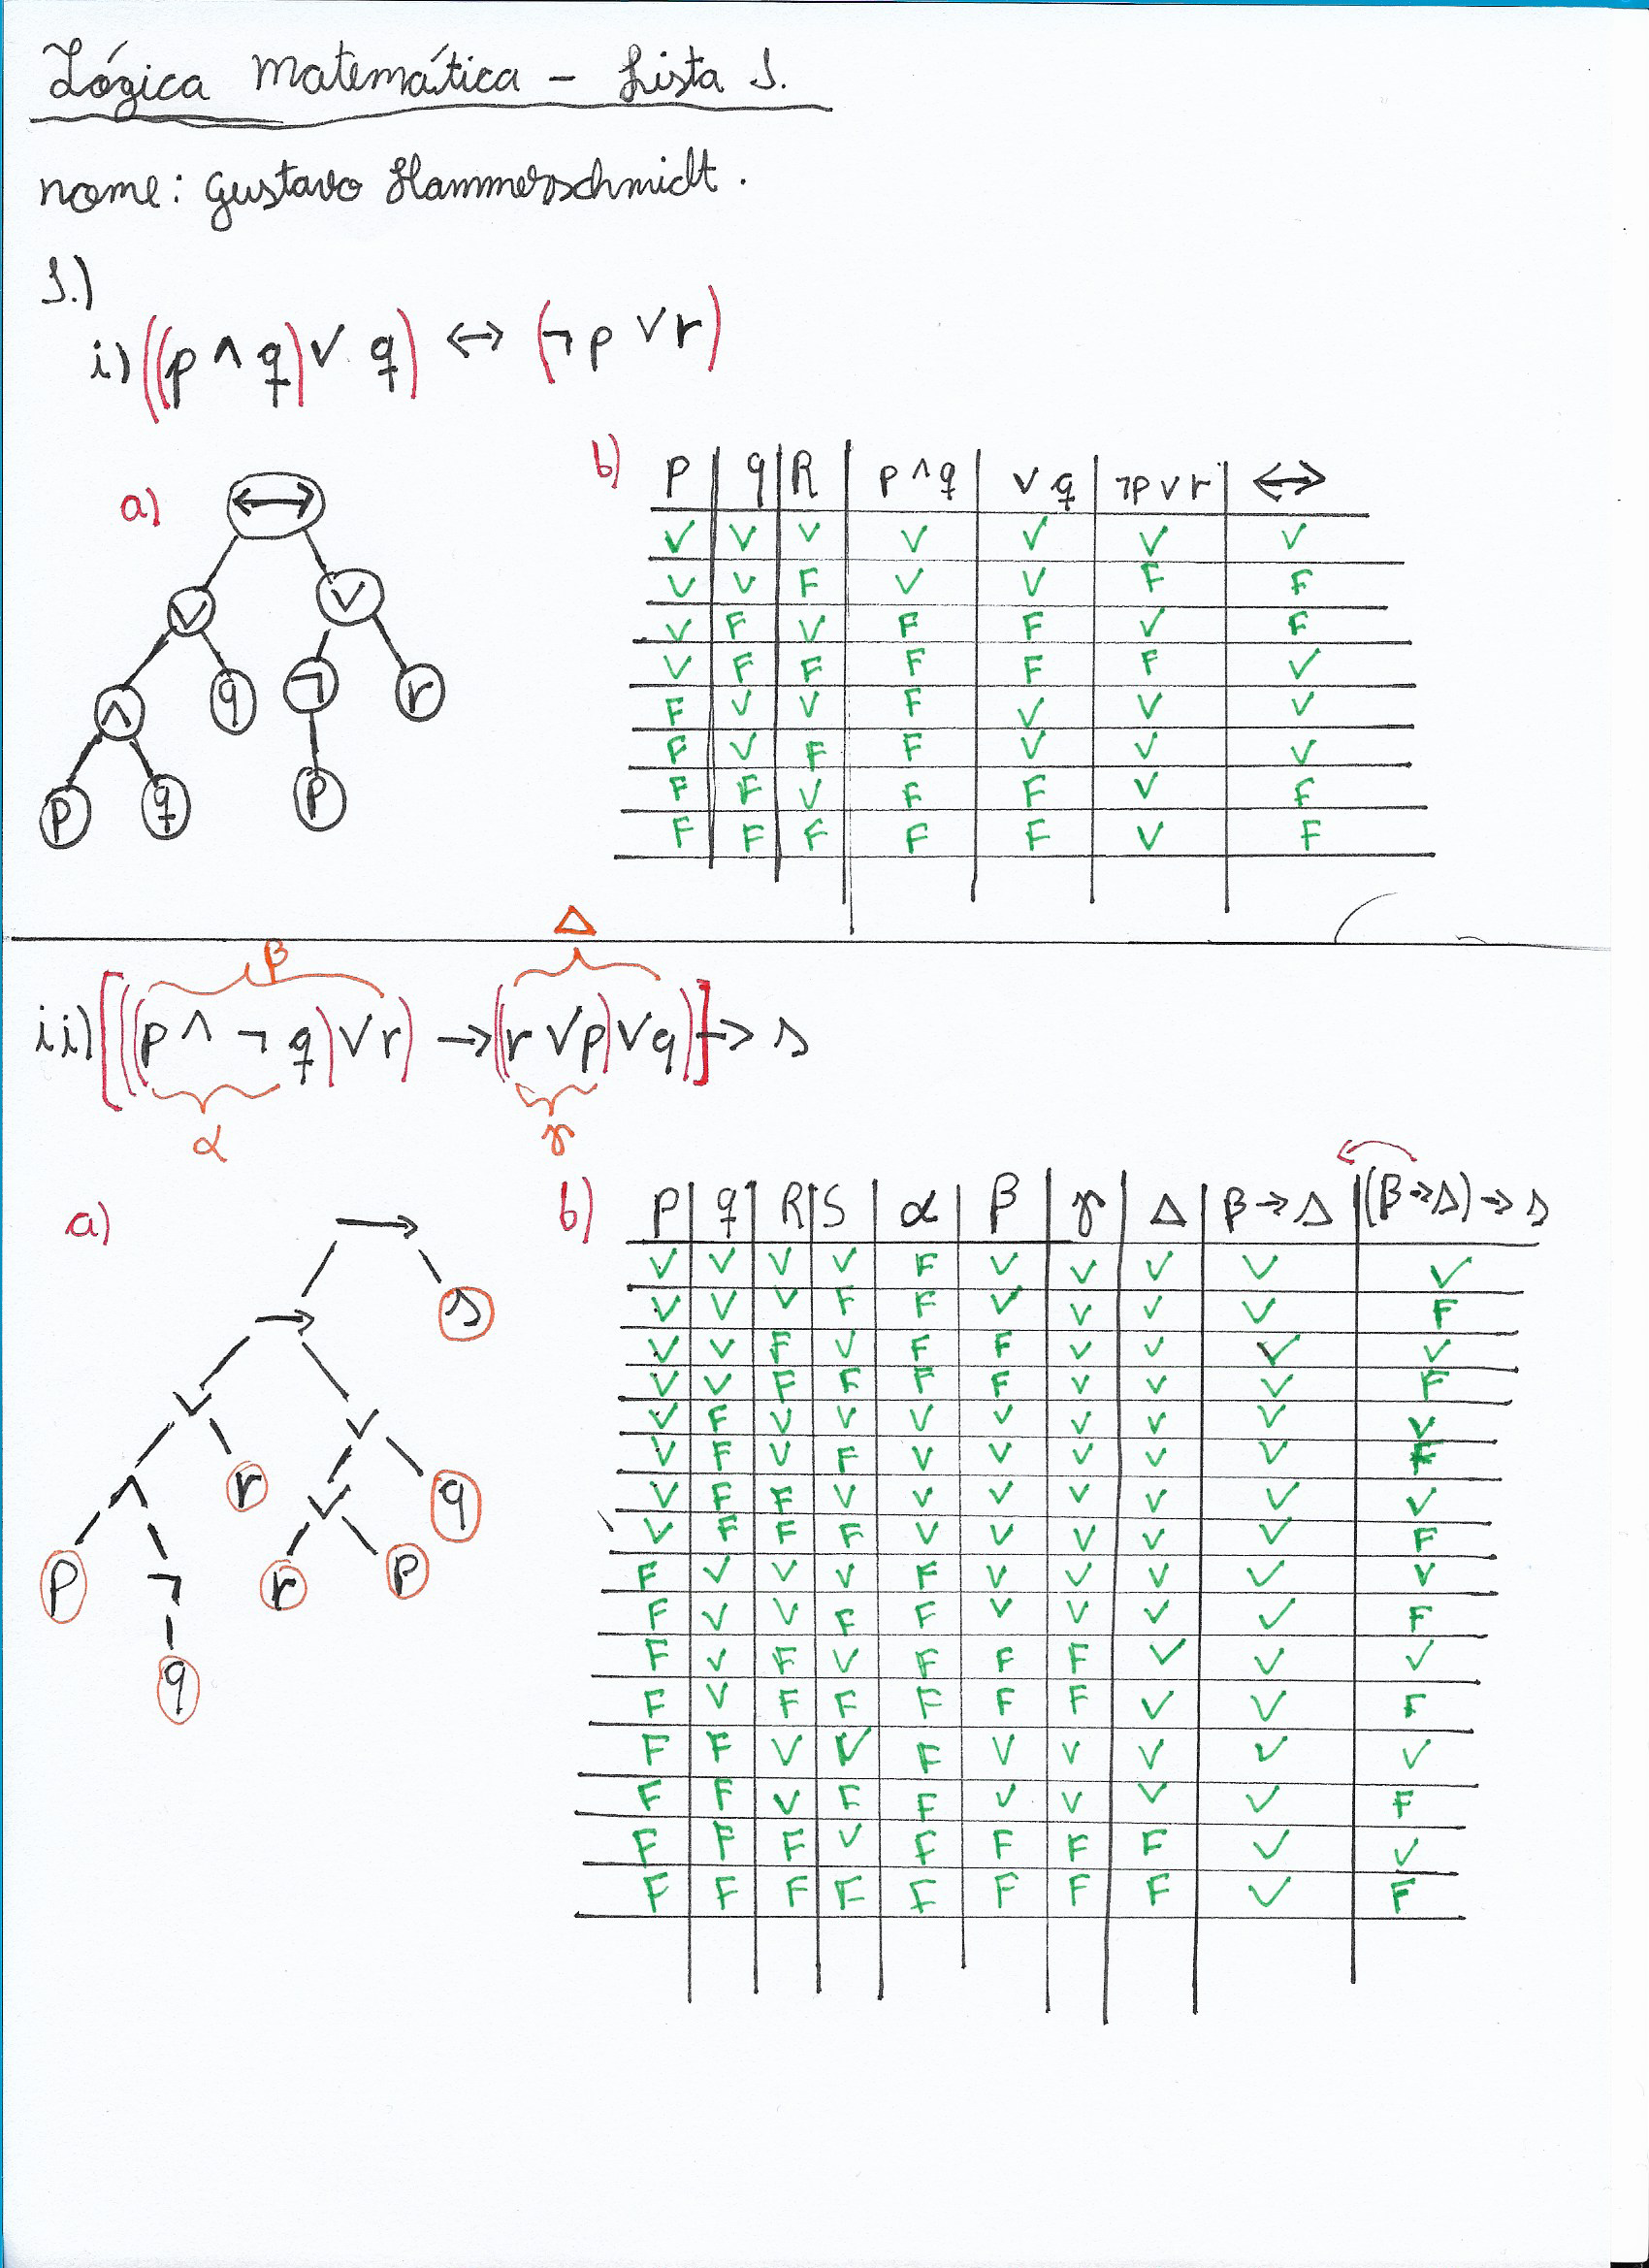 Lógica Matemática - Lista 1.
nome: Gustavo Hammerschmidt.
1.)
i) ((p ∧ q) ∨ q) ↔ (¬p ∨ r)
a)
↔
∨ ∨
∧ q ¬ r
p q p
b) P | q | R | p ∧ q | ∨ q | ¬p ∨ r | ↔
V V V V V V V
V V F V V F F
V F V F F V F
V F F F F F V
F V V F V V V
F V F F V V V
F F V F F V F
F F F F F V F
β Δ
ii) [((p ∧ ¬ q) ∨ r) → ((r ∨ p) ∨ q)] → s
α γ
a)
→
→ s
∨ ∨
∧ r ∨ q
p ¬ r p
q
b) P | q | R | S | α | β | γ | Δ | β → Δ | (β → Δ) → s
V V V V F V V V V V
V V V F F V V V V F
V V F V F F V V V V
V V F F F F V V V F
V F V V V V V V V V
V F V F V V V V V F
V F F V V V V V V V
V F F F V V V V V F
F V V V F V V V V V
F V V F F V V V V F
F V F V F F F V V V
F V F F F F F V V F
F F V V F V V V V V
F F V F F V V V V F
F F F V F F F F V V
F F F F F F F F V F